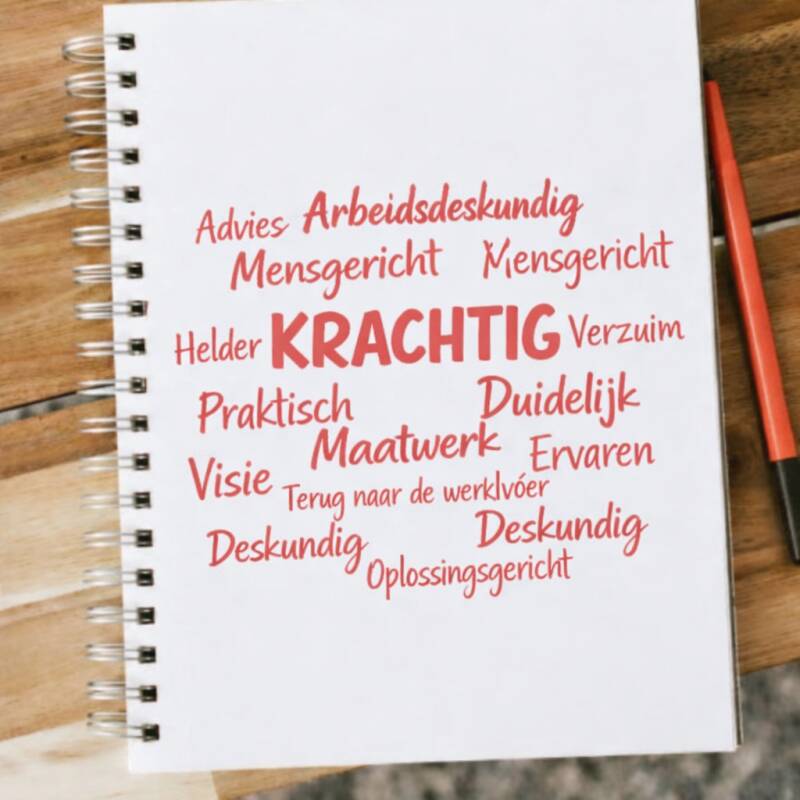 Advies Arbeidsdeskundig
Mensgericht Mensgericht
Helder KRACHTIG Verzuim
Praktisch Duidelijk
Maatwerk Ervaren
Visie Terug naar de werklvóer
Deskundig Deskundig
Oplossingsgericht